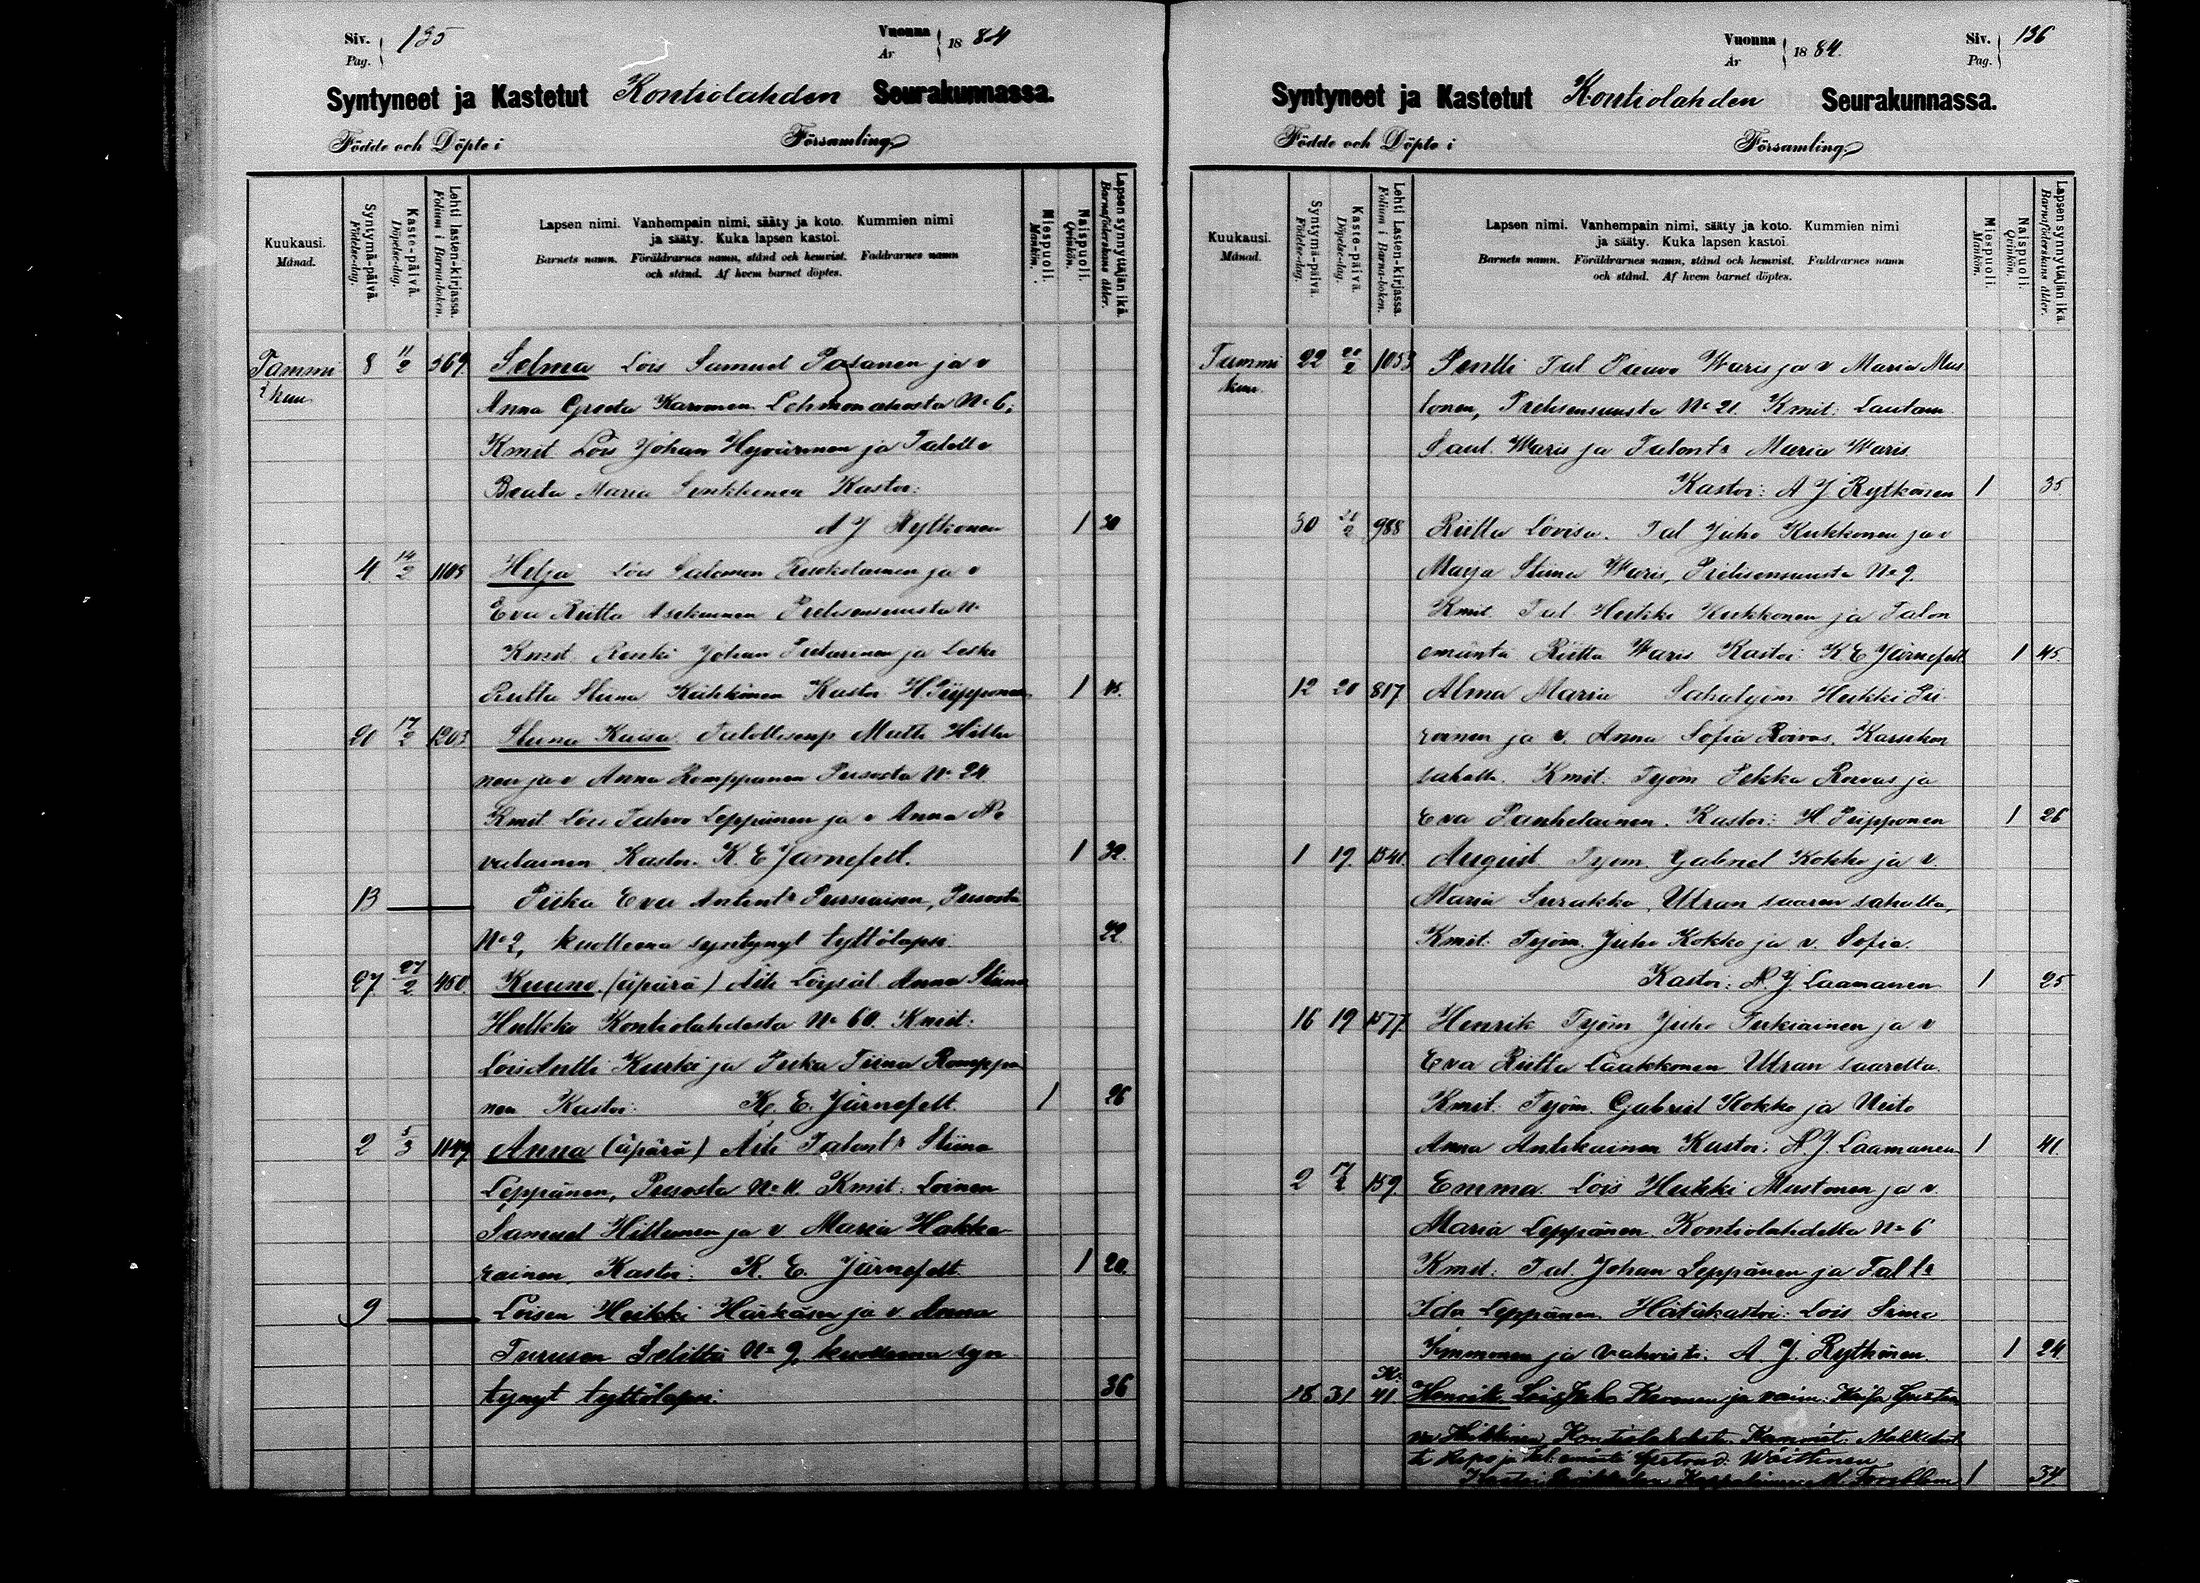 Siv. 135
Pag.
Vuonna 1884
År
Syntyneet ja Kastetut Kontiolahden Seurakunnassa.
Födde och Döpte i Församling.
Kuukausi.
Månad.
Syntymä-päivä.
Födelse-dag.
Kaste-päivä.
Döpelse-dag.
Lehti lasten-kirjassa.
Folium i Barna-boken.
Lapsen nimi. Vanhempain nimi, sääty ja koto. Kummien nimi
ja sääty. Kuka lapsen kastoi.
Barnets namn. Föräldrarnes namn, stånd och hemvist. Faddrarnes namn
och stånd. Af hvem barnet döptes.
Miespuoli.
Mankön.
Naispuoli.
Qvinkön.
Lapsen synnyttäjän ikä.
Barnaföderskans ålder.
Tammi 8 11/2 369 Selma Lois Samuel Pasanen ja v
kuu Anna Greeta Karvonen Lehmonahosta No 6.
Kmit Lois Johan Hyvärinen ja Talell.
Beata Maria Sinkkonen Kastoi:
A J Rytkönen 1 30
4 14/2 1105 Helja Lois Salomon Ruokolainen ja v
Eva Riitta Asikainen Pielisensuusta No
Kmit Renki Johan Pietarinen ja Leski
Riitta Stiina Kähkönen Kastoi H Piipponen 1 45.
20 17/2 1203 Stiina Kaisa Talollisenp Matti Hiltu
nen ja v Anna Romppanen Pusosta No 24
Kmit Lois Juhvo Leppänen ja v Anna No
vulainen Kastoi. K E Järnefelt. 1 32.
13 Piika Eva Antint:r Pursiaisen, Pusosta
No 2, kuolleena syntynyt tyttölapsi 22.
27 27/2 450. Kuuno (äpärä) Äiti Löysäl Anna Stiina
Hukka Kontiolahdesta No 60. Kmit:
Lois Antti Kurki ja Piika Tiina Romppa
nen Kastoi: K. E. Järnefelt. 1 26
2 5/3 1149. Anna (äpärä) Äiti Talont:r Stiina
Leppänen, Pusosta No 11. Kmit: Loinen
Samuel Hiltunen ja v Maria Hakka
rainen, Kastoi: K. E. Järnefelt. 1 20.
9 Loisen Heikki Härkäsen ja v. Anna
Turusen Selittä No 9, kuolleena syn
tynyt tyttölapsi. 36
Vuonna 1884.
År
Siv. 136
Pag.
Syntyneet ja Kastetut Kontiolahden Seurakunnassa.
Födde och Döpte i Församling.
Kuukausi.
Månad.
Syntymä-päivä.
Födelse-dag.
Kaste-päivä.
Döpelse-dag.
Lehti Lasten-kirjassa.
Folium i Barna-boken.
Lapsen nimi. Vanhempain nimi, sääty ja koto. Kummien nimi
ja sääty. Kuka lapsen kastoi.
Barnets namn. Föräldrarnes namn, stånd och hemvist. Faddrarnes namn
och stånd. Af hvem barnet döptes.
Miespuoli.
Mankön.
Naispuoli.
Qvinkön.
Lapsen synnyttäjän ikä
Barnaföderskans ålder.
Tammi 22 20/2 1053 Pentti Tal Paavo Waris ja v Maria Mus
kuu tonen, Pielisensuusta No 21. Kmit: Lautam
Paul. Waris ja Talont:r Maria Waris.
Kastoi: A J Rytkönen 1 35
30 21/2 988 Riitta Lovisa. Tal Juho Kukkonen ja v
Marja Stiina Waris, Pielisensuusta No 9.
Kmit. Tal. Heikki Kukkonen ja Talon
emäntä Riitta Waris Kastoi: K. E Järnefelt 1 45.
12 20 817 Alma Maria Sahatyöm Heikki Pii
roinen ja v. Anna Sofia Roivas, Karsikon
sahalta. Kmit: Työm Pekka Roivas ja
Eva Tanhelainen. Kastoi: H Piipponen 1 26
1 19. 1541 August. Työm. Gabriel Kokko ja v.
Maria Surakka, Utran saaren sahalta,
Kmit. Työm. Juho Kokko ja v. Sofia.
Kastoi: A. J. Laamanen 1 25
16 19 1577. Henrik Työm Juho Turkiainen ja v
Eva Riitta Laakkonen Utran saarelta.
Kmit: Työm. Gabriel Kokko ja Neito
Anna Antikainen Kastoi: A. J. Laamanen 1 41.
2 17/2 159. Emma. Lois Heikki Mustonen ja v.
Maria Leppänen, Kontiolahdelta No 6
Kmit: Tal. Johan Leppänen ja Tal t:r
Ida Leppänen. Hätäkastoi: Lois Simo
Kinnonen ja vahvisti: A. J. Rytkönen. 1 24
18 31 41. Henrik. Lois Juho Karonen ja vaim: Kaisa Gusta
va Kontiolahdesta. Kummit:
Repo ja tal. emäntä Wäittinen
Kastoi 1 34